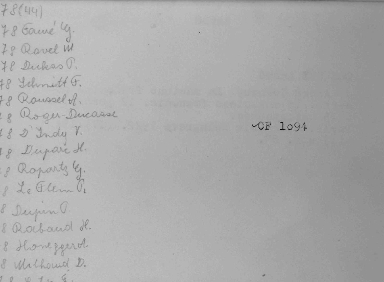 78(44)
78 Fauré G.
78 Ravel M
78 Dukas P.
78 Schmitt F.
78 Roussel A.
78 Roger-Ducasse
78 D'Indy V.
78 Duparc H.
78 Ropartz G.
8 Le Flem P.
8 Dupin P
8 Rabaud H.
8 Honegger A.
8 Milhaud D.
OP 1094